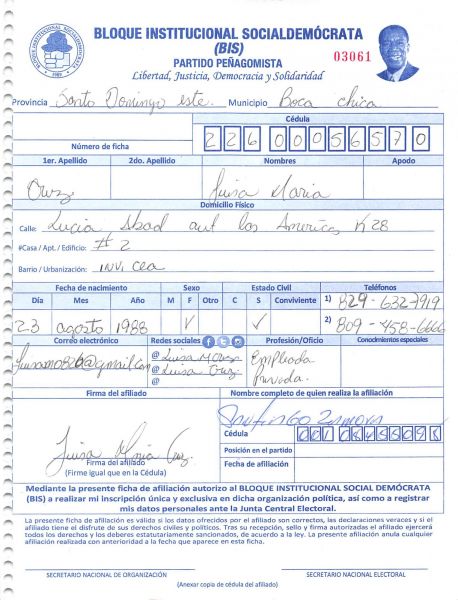 BLOQUE INSTITUCIONAL SOCIALDEMÓCRATA
(BIS)
PARTIDO PEÑAGOMISTA
Libertad, Justicia, Democracia y Solidaridad
03061
Provincia Santo Domingo este. Municipio Boca chica
Cédula
Número de ficha 22600056570
1er. Apellido 2do. Apellido Nombres Apodo
Cruz Luisa Maria
Domicilio Físico
Calle: Lucia Abad aut las Americas K 28
#Casa / Apt. / Edificio: # 2
Barrio / Urbanización: INVI CEA
Fecha de nacimiento Sexo Estado Civil Teléfonos
Día Mes Año M F Otro C S Conviviente 1) 829-632-7919
23 agosto 1988 2) 809-458-6666
Correo electrónico Redes sociales Profesión/Oficio Conocimientos especiales
@gmail.com @ Luisa M Cruz Empleada
@ Luisa Cruz privada.
@
Firma del afiliado Nombre completo de quien realiza la afiliación
Zamora
Cédula 001
Posición en el partido
Luisa Maria Cruz.
Firma del afiliado
(Firme igual que en la Cédula)
Fecha de afiliación
Mediante la presente ficha de afiliación autorizo al BLOQUE INSTITUCIONAL SOCIAL DEMÓCRATA
(BIS) a realizar mi inscripción única y exclusiva en dicha organización política, así como a registrar
mis datos personales ante la Junta Central Electoral.
La presente ficha de afiliación es válida si los datos ofrecidos por el afiliado son correctos, las declaraciones veraces y si el
afiliado tiene el disfrute de sus derechos civiles y políticos. Tras su recepción, sello y firma autorizadas el afiliado ejercerá
todos los derechos y los deberes estatutariamente sancionados, de acuerdo a la ley. La presente afiliación anula cualquier
afiliación realizada con anterioridad a la fecha que aparece en esta ficha.
SECRETARIO NACIONAL DE ORGANIZACIÓN SECRETARIO NACIONAL ELECTORAL
(Anexar copia de cédula del afiliado)